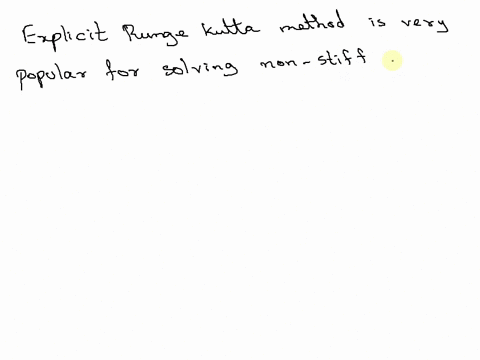 Explicit Runge Kutta method is very
popular for solving non-stiff